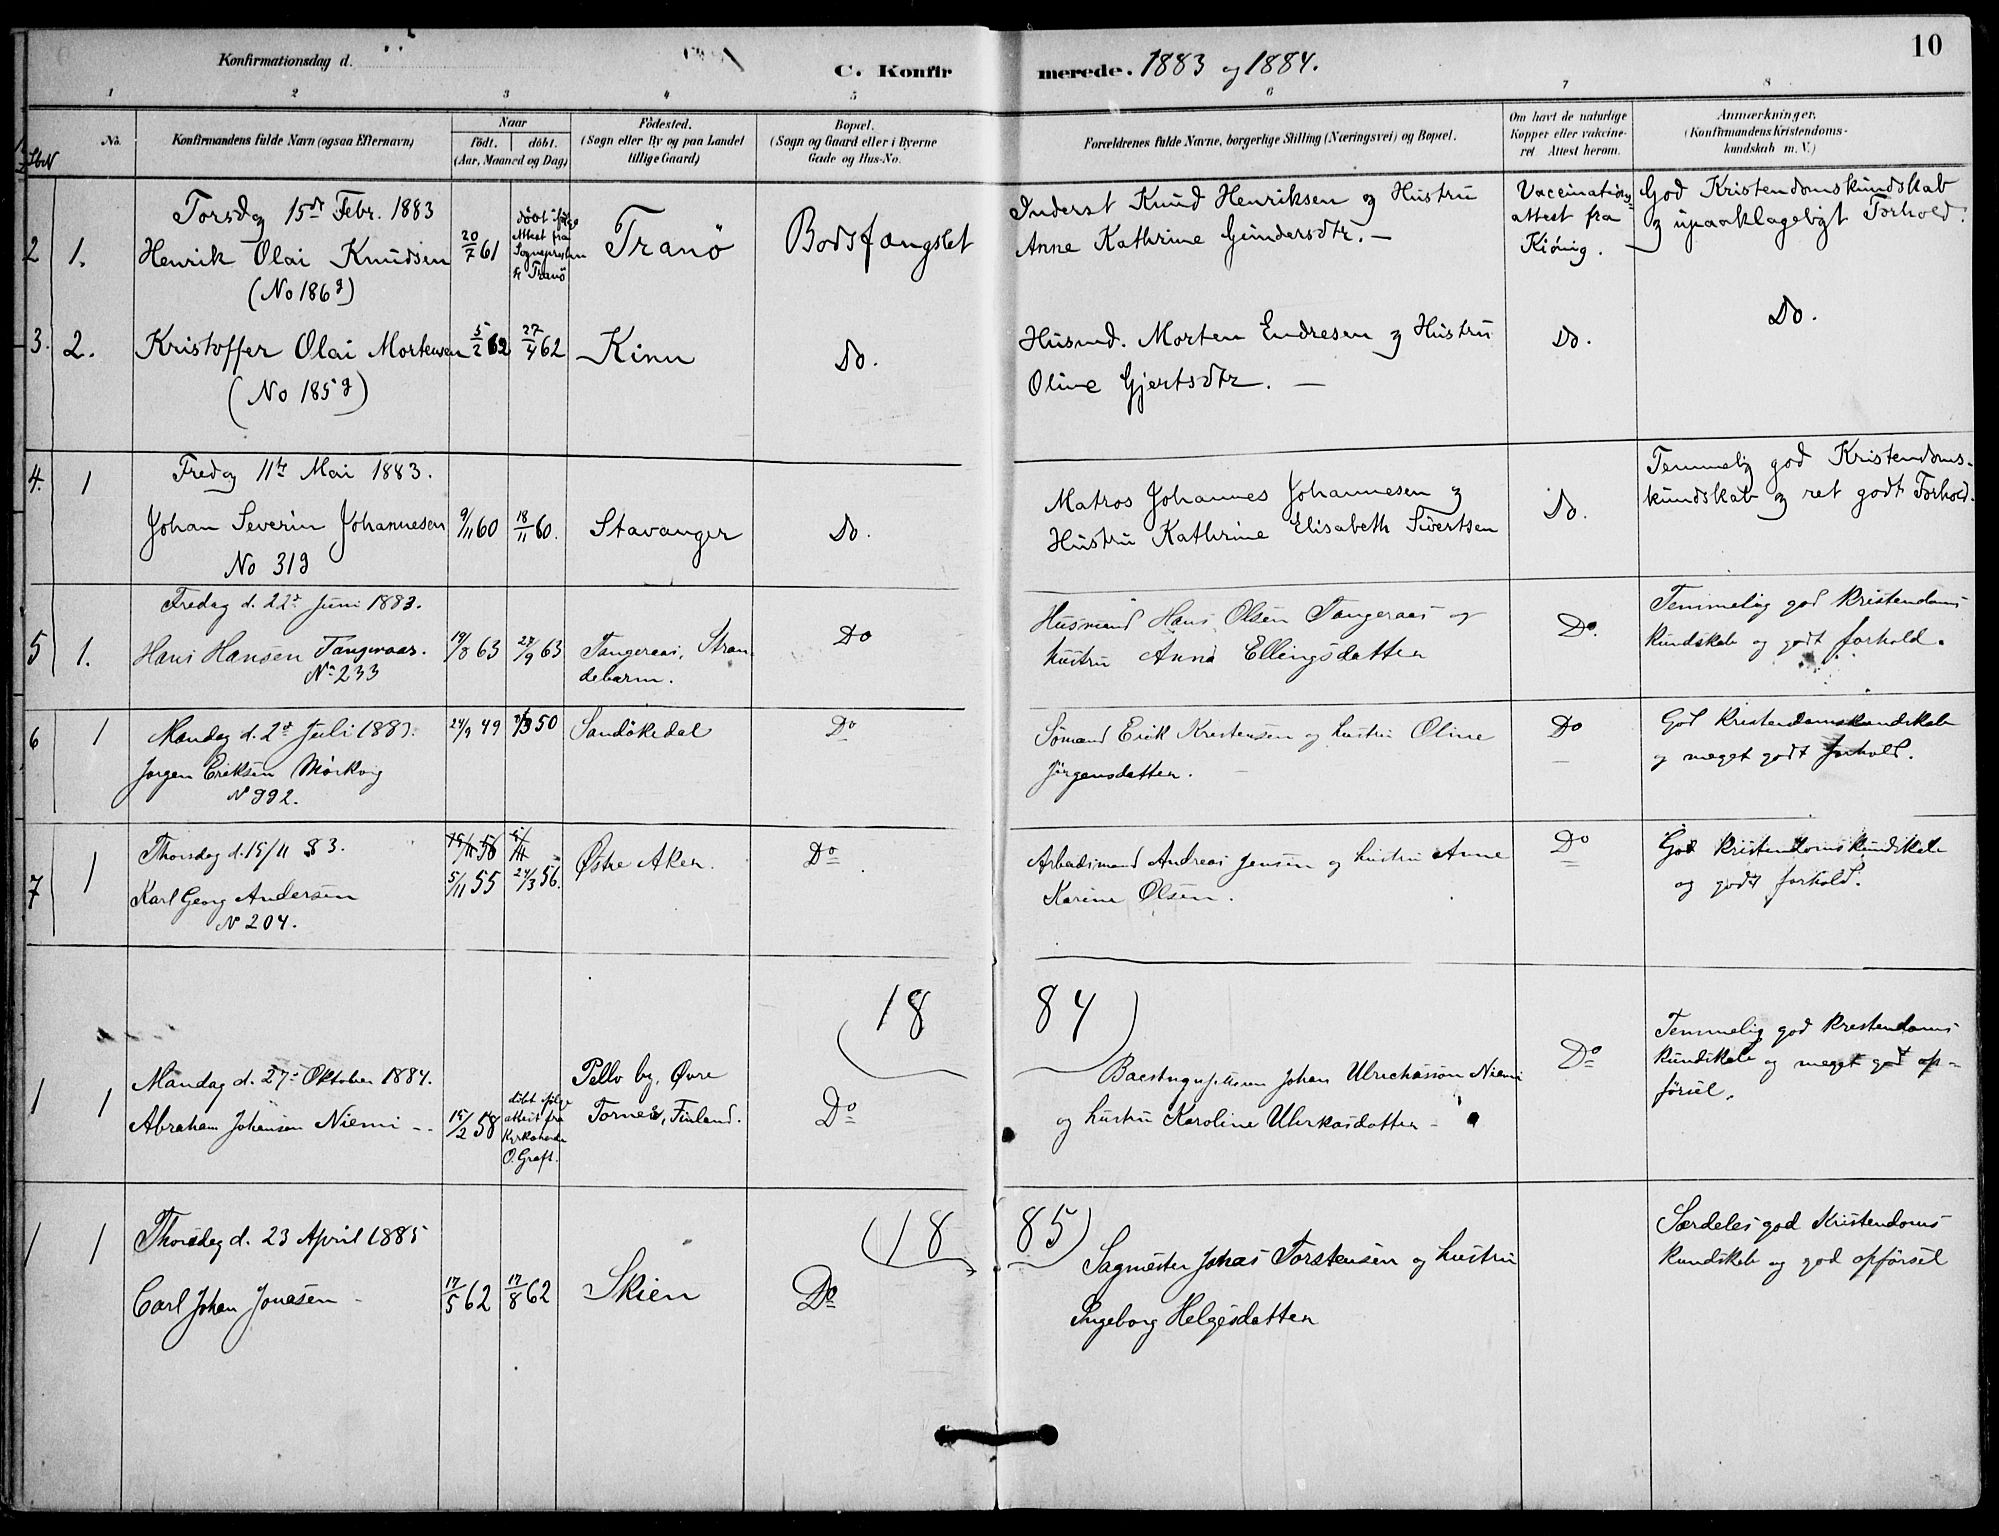 10
Konfirmationsdag d.
C. Konfir merede. 1883 og 1884.
1 2 3 4 5 6 7 8
LbN
No.
Konfirmandens fulde Navn (ogsaa Efternavn)
Naar
Født. døbt.
(Aar, Maaned og Dag)
Fødested.
(Sogn eller By og paa Landet
tillige Gaard)
Bopæl.
(Sogn og Gaard eller i Byerne
Gade og Hus-No.
Forældrenes fulde Navne, borgerlige Stilling (Næringsvei) og Bopæl.
Om havt de naturlige
Kopper eller vakcine-
ret Attest herom.
Anmærkninger.
(Konfirmandens Kristendoms-
kundskab m. V.)
Torsdag 15de Febr. 1883
2 1. Henrik Olai Knudsen
(No 186g)
20/7 61
døbt ifølge
Attest fra
Sognepresten
til Tranö
Tranö
Bodsfængslet
Inderst Knud Henriksen og Hustru
Anne Kathrine Gundersdtr. —
Vaccinations-
attest fra
God Kristendomskundskab
og upaaklageligt Forhold.
3. 2. Kristoffer Olai Mortensen
(No 185g)
5/2 62 27/4 62 Kinn Do.
Husmd. Morten Endresen og Hustru
Oline Gjertsdtr. —
Do. Do.
Fredag 11te Mai 1883.
4. 1 Johan Severin Johannesen
No 31g
9/11 60 18/11 60. Stavanger Do.
Matros Johannes Johannesen og
Hustru Kathrine Elisabeth Sivertsen
Do.
Temmelig god Kristendoms-
kundskab og ret godt Forhold.
Fredag d. 22de Juni 1883.
5 1. Hans Hansen Tangeraas.
No 233
19/8 63 27/9 63 Tangeraas, Stran
debarm.
Do
Husmand Hans Olsen Tangeraas og
hustru Anna Ellingsdatter
Do.
Temmelig god kristendoms
kundskab og godt forhold.
6 1 Mandag d. 2de Juli 1883.
Jørgen Eriksen Mørkvig
N 992.
24/9 49 50 Sandökedal Do
Sømand Erik Kristensen og hustru Oline
Jørgensdatter.
Do
God kristendomskundskab
og meget godt forhold.
7 1 Thorsdag d. 15/11 83.
Karl Georg Andersen
N 204.
5/11 55 24/3 56. Østre Aker. Do
Arbeidsmand Andreas Jensen og hustru Anne
Karine Olsen.
Do
God kristendomskundskab
og godt forhold.
18 84
1 1 Mandag d. 27de Oktober 1884.
Abraham Johansson Niemi —
15/2 58
døbt ifølge
attest fra
O. Graft.
Pello by, Øvre
Torneå, Finland.
Do
Johan Ulrichsson Niemi
og hustru Karoline Ulrkasdatter —
Do
Temmelig god kristendoms
kundskab og meget god op-
førsel.
18 85
1 1 Thorsdag d. 23 April 1885
Carl Johan Jonasen —
17/5 62 17/8 62 Skien Do
Sagmester Johas Torstensen og hustru
Ingeborg Helgesdatter
Særdeles god Kristendoms
kundskab og god opførsel